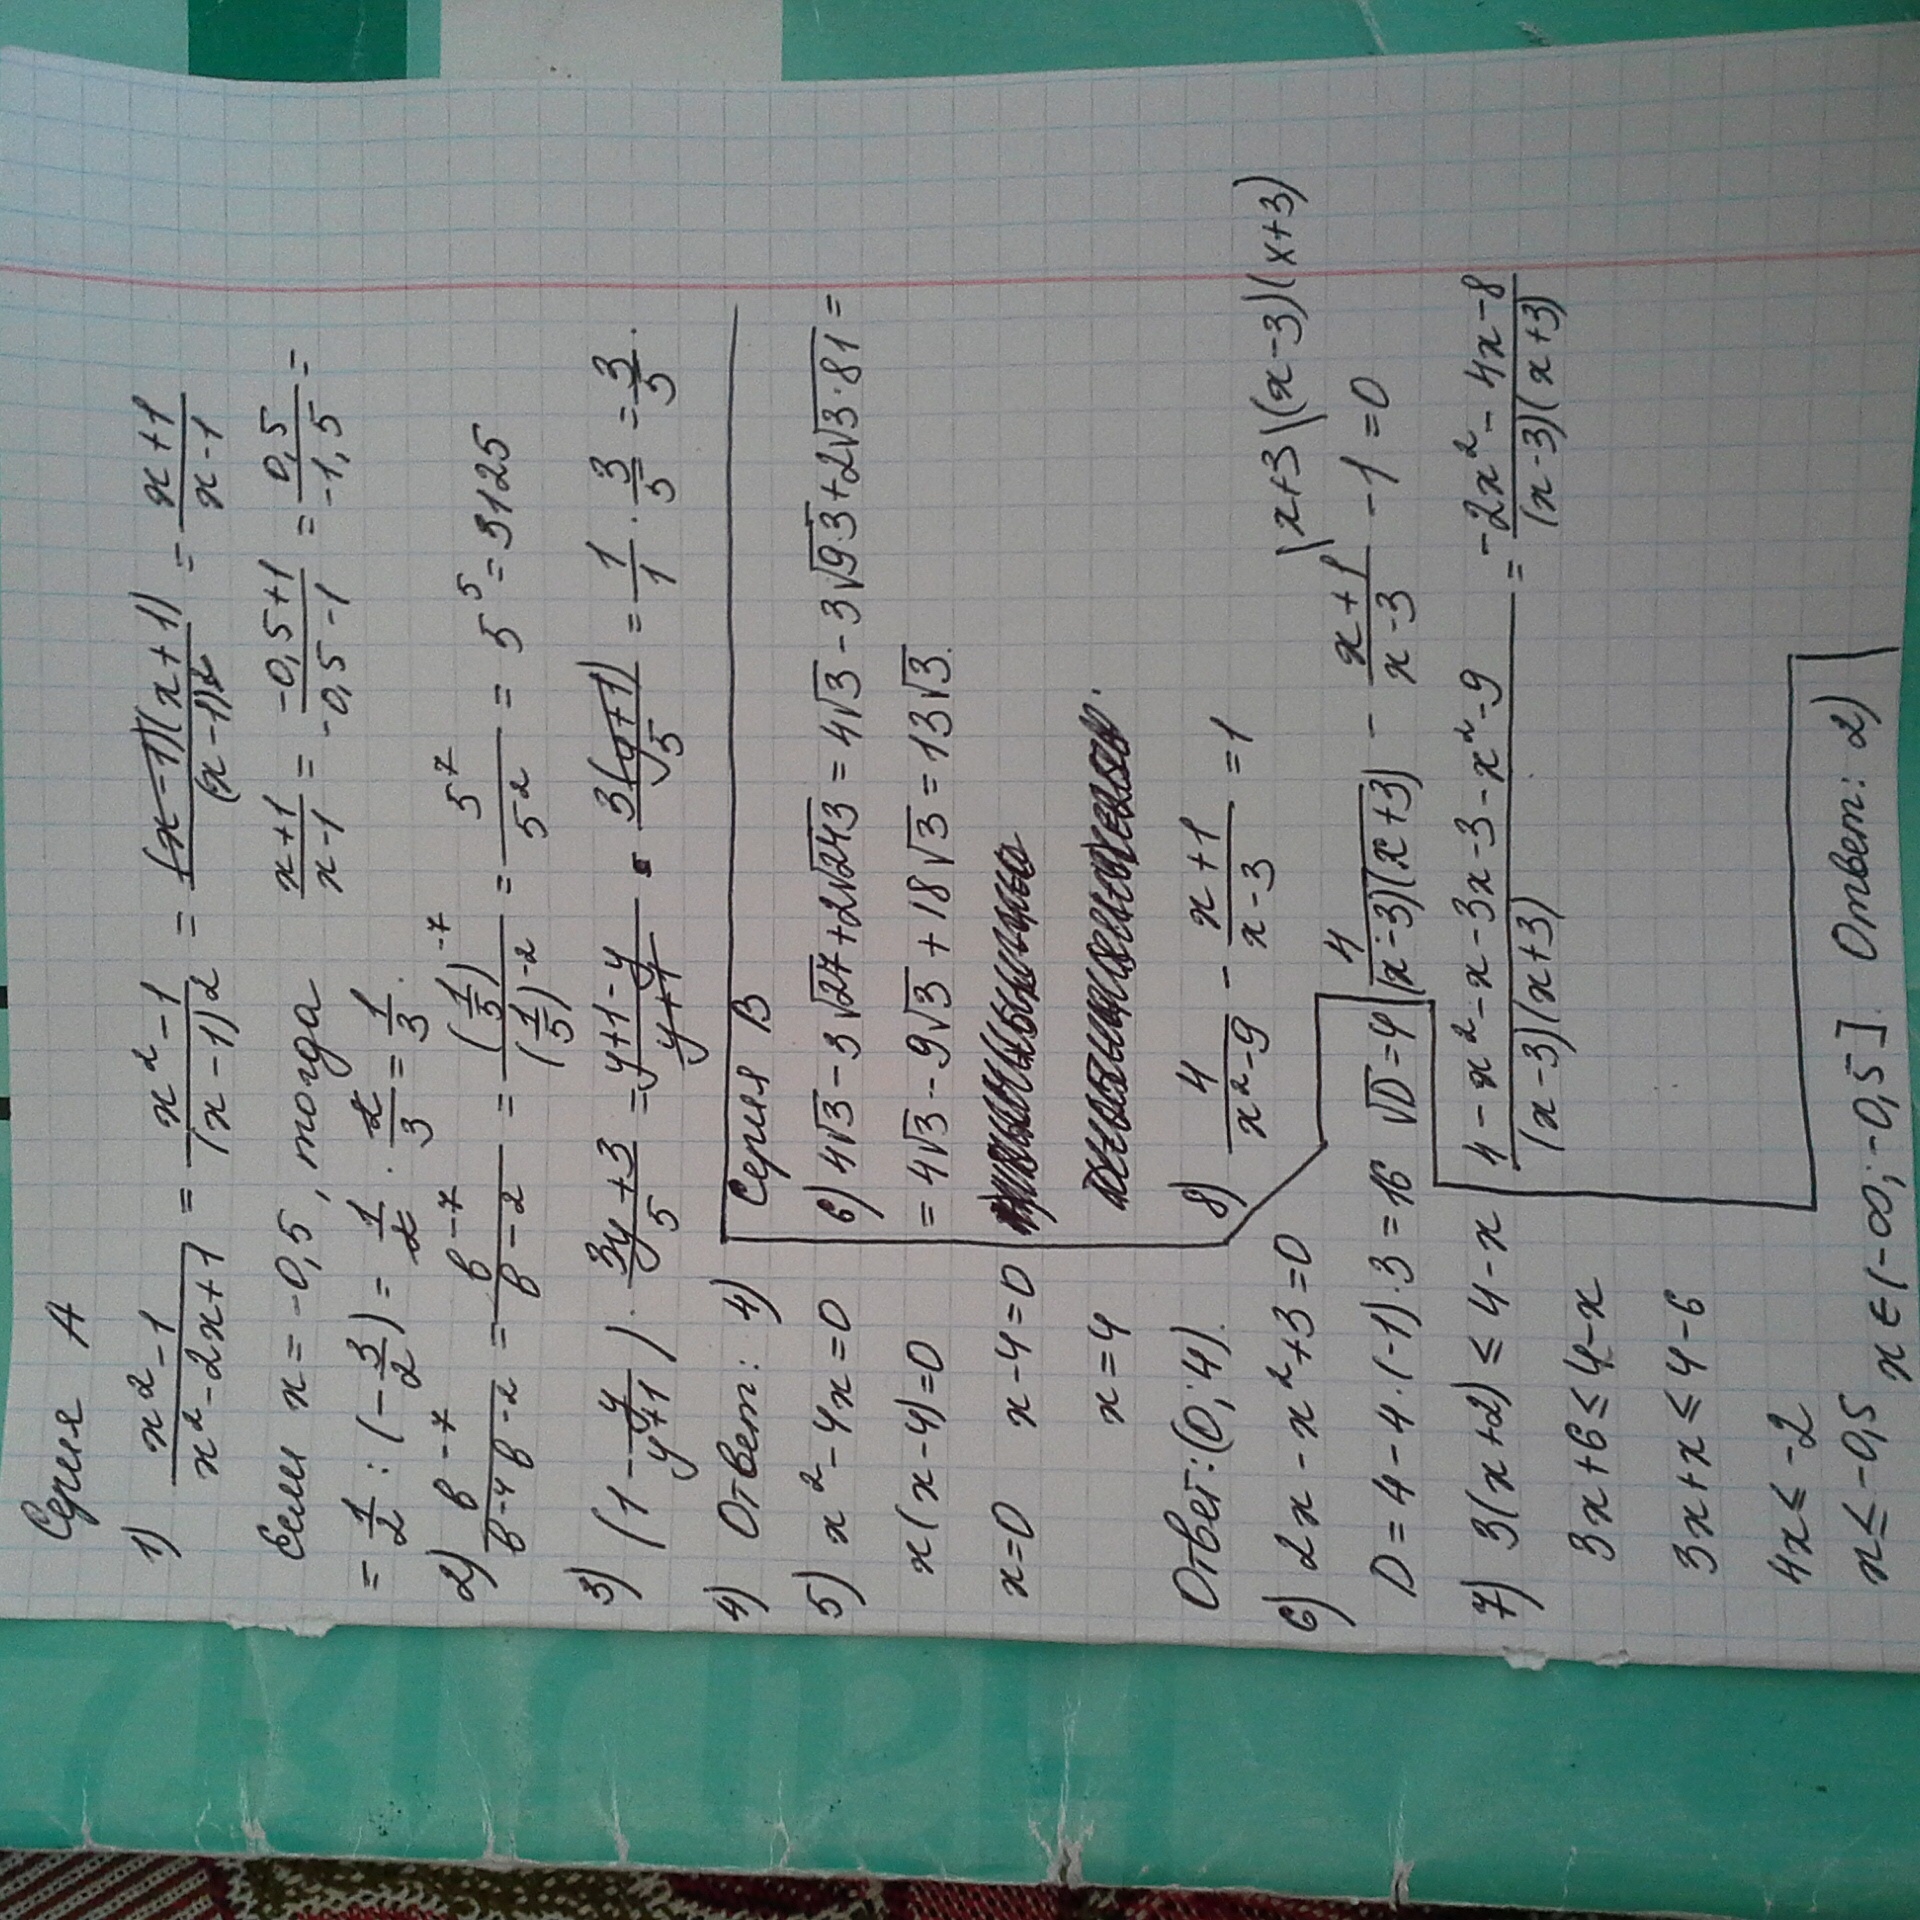 Серия А
1) (x²-1)/(x²-2x+1) = (x²-1)/(x-1)² = ((x-1)(x+1))/(x-1)² = (x+1)/(x-1)
Если x = -0,5, тогда (x+1)/(x-1) = (-0,5+1)/(-0,5-1) = 0,5/(-1,5) =
= 1/2 : (-3/2) = 1/2 · 2/3 = 1/3.
2) b⁻⁷/(b⁻⁴b⁻²) = b⁻⁷/b⁻² = (1/5)⁻⁷/(1/5)⁻² = 5⁷/5² = 5⁵ = 3125
3) (1 - y/(y+1)) · (3y+3)/5 = (y+1-y)/(y+1) · 3(y+1)/5 = 1/1 · 3/5 = 3/5.
4) Ответ: 4)
5) x² - 4x = 0
x(x-4) = 0
x=0 x-4=0
x=4
Ответ: (0; 4).
6) 2x - x² + 3 = 0
D = 4 - 4·(-1)·3 = 16 √D = 4
7) 3(x+2) ≤ 4-x
3x+6 ≤ 4-x
3x+x ≤ 4-6
4x ≤ -2
x ≤ -0,5 x ∈ (-∞; -0,5]. Ответ: 2)
Серия В
в) 4√3 - 3√27 + 2√243 = 4√3 - 3√9·3 + 2√3·81 =
= 4√3 - 9√3 + 18√3 = 13√3.
8) 4/(x²-9) - (x+1)/(x-3) = 1
4/((x-3)(x+3)) - (x+1)/(x-3) \x+3 - 1 \(x-3)(x+3) = 0
(4 - x² - x - 3x - 3 - x² - 9)/((x-3)(x+3)) = (-2x² - 4x - 8)/((x-3)(x+3))